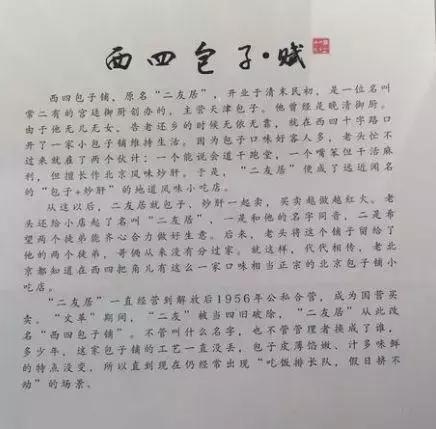 西四包子·赋
西四包子铺，原名“二友居”，开业于清末民初，是一位名叫
常二有的宫廷御厨创办的，主营天津包子。他曾经是晚清御厨。
由于他无儿无女，告老还乡的时候无依无靠，就在西四十字路口
开了一家小包子铺维持生活。因为包子口味好客人多，老头忙不
过来就雇了两个伙计：一个能说会道干跑堂，一个嘴笨但干活麻
利，但擅长作北京风味炒肝。于是，“二友居”便成了远近闻名
的“包子+炒肝”的地道风味小吃店。
从这以后，二友居就包子、炒肝一起卖，买卖越做越红火。老
头还给小店起了名叫“二友居”，一是和他的名字同音，二是希
望两个徒弟能齐心合力做好生意。后来，老头将这个铺子留给了
他的两个徒弟，哥俩从来没有分过家。就这样，代代相传，老北
京都知道在西四把角儿有这么一家口味相当正宗的北京包子铺小
吃店。
“二友居”一直经营到解放后1956年公私合营，成为国营买
卖。“文革”期间，“二友”被当四旧破除，“二友居”从此改
名“西四包子铺”。不管叫什么名字，也不管管理者换成了谁，
多少年，这家包子铺的工艺一直没丢，包子皮薄馅嫩、汁多味鲜
的特点没变，所以直到现在仍经常出现“吃饭排长队，假日挤不
动”的场景。